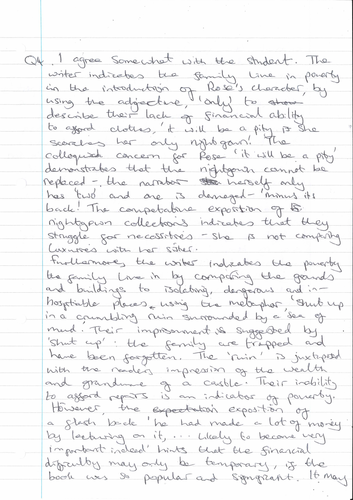 Q4. I agree somewhat with the student. The
writer indicates the family live in poverty
in the introduction of Rose's character, by
using the adjective, 'only' to
describe their lack of financial ability
to afford clothes, 'it will be a pity is she
scorches her only nightgown'. The
colloquial concern for Rose 'it will be a pity'
demonstrates that the nightgown cannot be
replaced - the narrator herself only
has 'two' and one is damaged - 'minus its
back! The comparative exposition of
nightgown collections indicates that they
struggle for necessities - she is not comparing
luxuries with her sister.
Furthermore, the writer indicates the poverty
the family live in by comparing the grounds
and buildings to isolating, dangerous and in-
hospitable places, using the metaphor 'shut up
in a crumbling ruin surrounded by a 'sea of
mud'. Their imprisonment is suggested by
'shut up': the family are trapped and
have been forgotten. The 'ruin' is juxtaposed
with the readers impression of the wealth
and grandeur of a castle. Their inability
to afford repairs is an indicator of poverty.
However, the exposition of
a flash back 'he had made a lot of money
by lecturing on it, ... likely to become very
important indeed' hints that the financial
difficulty may only be temporary, if the
book was so popular and significant. It may